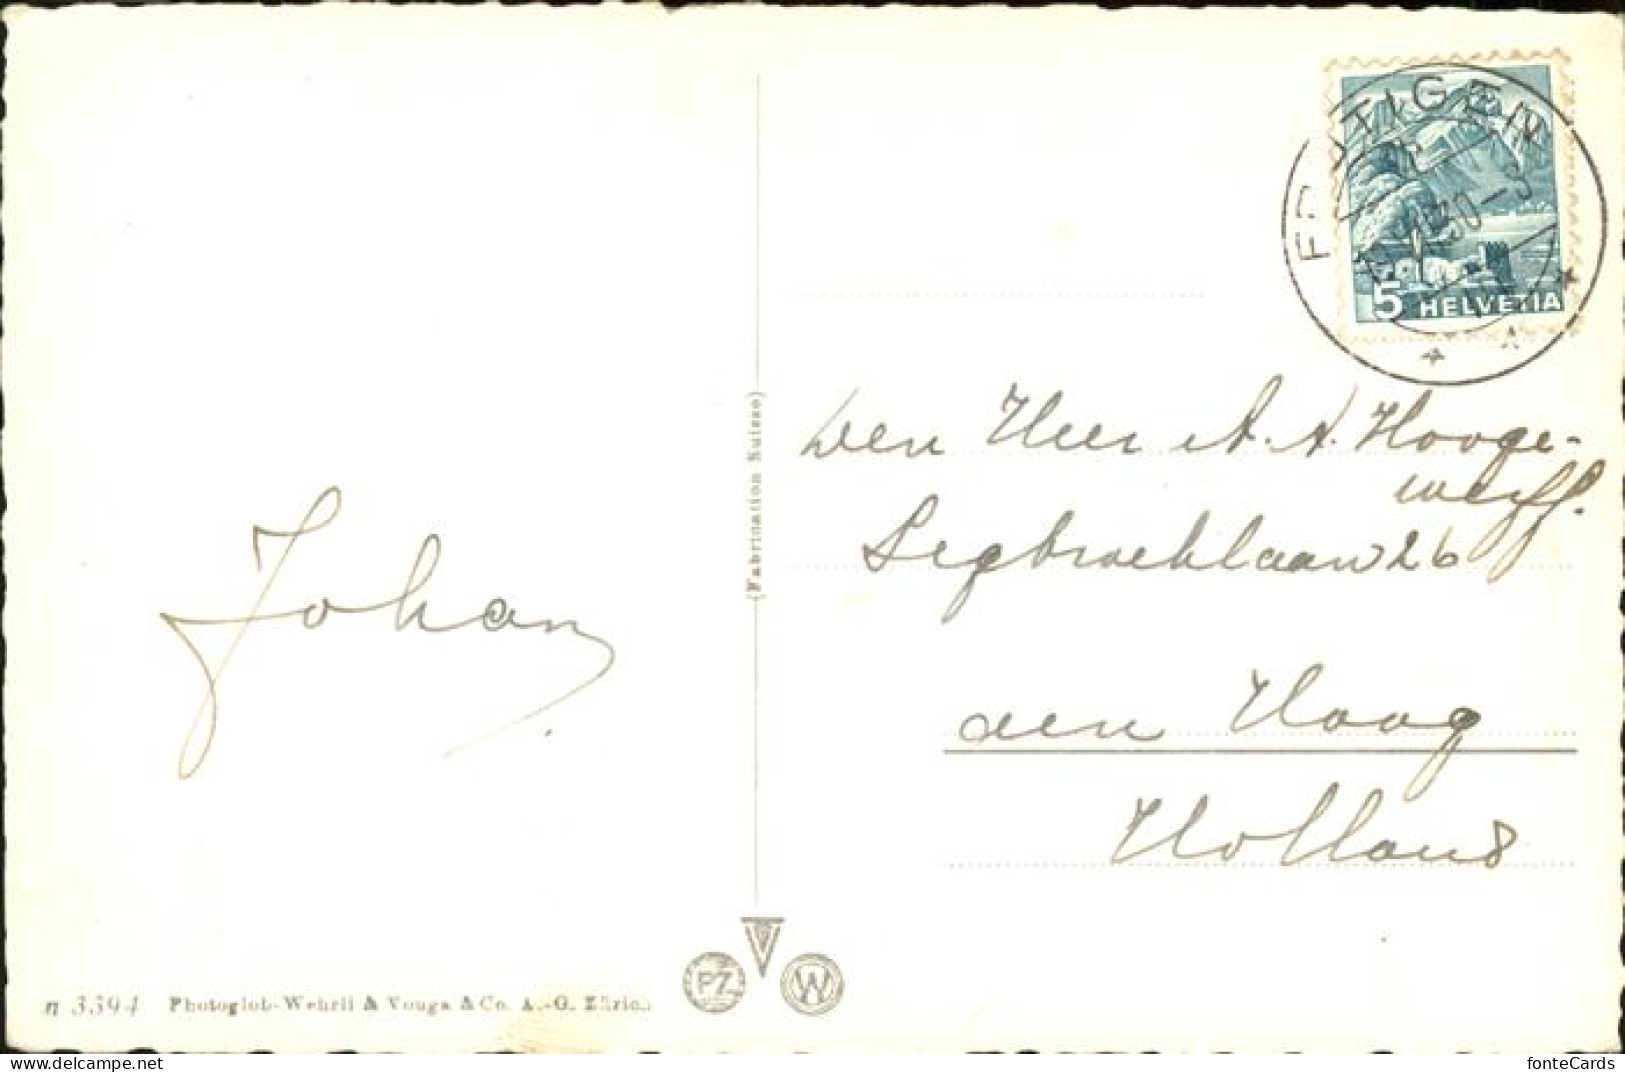 FRUTIGEN
5 HELVETIA
Den Heer A. A. Hooge-
werff.
Segbroeklaan 26
den Haag
Holland
Johan
(Fabrication Suisse)
V
PZ W
n 3394 Photoglob-Wehrli & Vouga & Co. A.-G. Zürich
delcampe.net
fonteCards